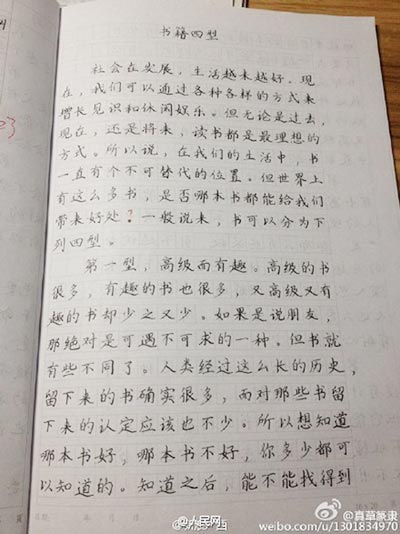 书籍四型
社会在发展，生活越来越好。现
在，我们可以通过各种各样的方式来
增长见识和休闲娱乐。但无论是过去，
现在，还是将来，读书都是最理想的
方式。所以说，在我们的生活中，书
一直有个不可替代的位置。但世界上
有这么多书，是否哪本书都能给我们
带来好处？一般说来，书可以分为下
列四型。
第一型，高级而有趣。高级的书
很多，有趣的书也很多，又高级又有
趣的书却少之又少。如果是说朋友，
那绝对是可遇不可求的一种。但书就
有些不同了。人类经过这么长的历史，
留下来的书确实很多，而对那些书留
下来的认定应该也不少。所以想知道
哪本书好，哪本书不好，你多少都可
以知道的。知道之后，能不能找得到
@人民网
@真草篆隶
weibo.com/u/1301834970